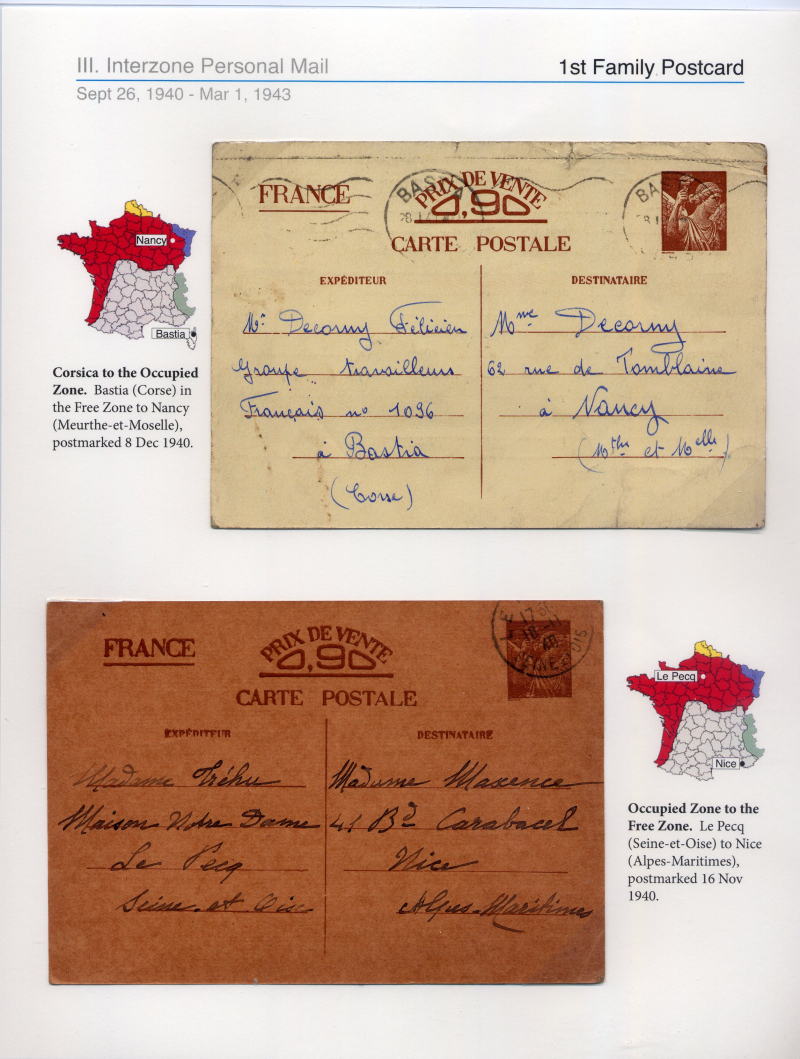 III. Interzone Personal Mail
1st Family Postcard
Sept 26, 1940 - Mar 1, 1943
Nancy
Bastia
Corsica to the Occupied
Zone. Bastia (Corse) in
the Free Zone to Nancy
(Meurthe-et-Moselle),
postmarked 8 Dec 1940.
FRANCE
PRIX DE VENTE
0,90
CARTE POSTALE
EXPÉDITEUR
Mr Decorny Félicien
Groupe travailleurs
Français no 1036
à Bastia
(Corse)
DESTINATAIRE
Mme Decorny
62 rue de Tomblaine
à Nancy
(Mthe et Melle)
FRANCE
PRIX DE VENTE
0,90
CARTE POSTALE
LE
17
16-11
40
SEINE ET OISE
EXPÉDITEUR
Madame Tréhu
Maison Notre Dame
Le Pecq
Seine et Oise
DESTINATAIRE
Madame Maxence
41 Bd Carabacel
Nice
Alpes-Maritimes
Le Pecq
Nice
Occupied Zone to the
Free Zone. Le Pecq
(Seine-et-Oise) to Nice
(Alpes-Maritimes),
postmarked 16 Nov
1940.